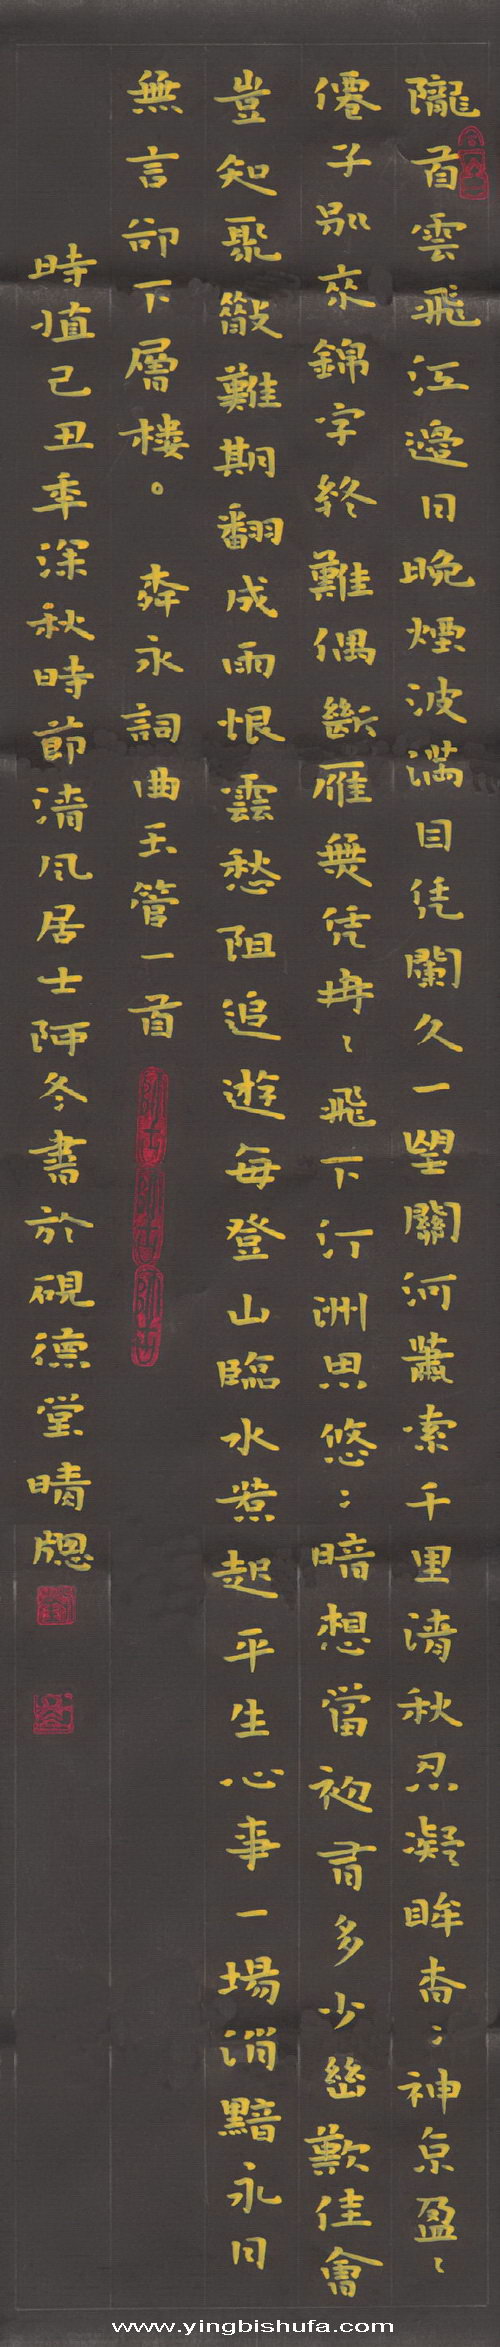 隴首雲飛江邊日晚煙波滿目凭闌久一望關河蕭索千里清秋忍凝眸杳〻神京盈〻
僊子別來錦字終難偶斷雁無凭冉〻飛下汀洲思悠〻暗想當初有多少幽歡佳會
豈知聚散難期翻成雨恨雲愁阻追遊每登山臨水惹起平生心事一場消黯永日
無言卻下層樓。 柳永詞曲玉管一首
時值己丑年深秋時節清風居士阿冬書於硯德堂晴窗
www.yingbishufa.com